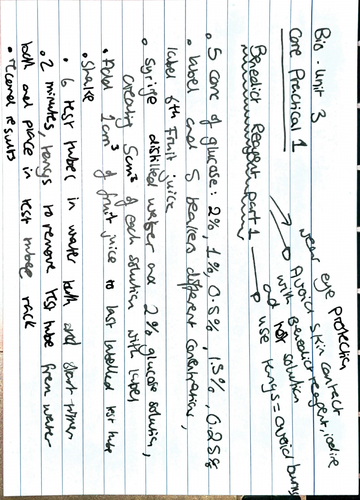 Bio - Unit 3
Core Practical 1
Benedict Reagent part 1
wear eye protection
Avoid skin contact
with Benedict reagent, iodine
and hot solution
use tongs = avoid burns
• 5 conc of glucose: 2%, 1%, 0.5%, 1.5%, 0.25%
• label and 5 beakers different concentration,
label 6th Fruit juice
• Syringe distilled water and 2% glucose solution,
creating 5cm³ of each solution with label
• Add 1cm³ of fruit juice to last labelled test tube
• Shake
• 6 test tubes in water bath and start timer
• 2 minutes, tongs to remove test tube from water
bath and place in test tube rack
• record results